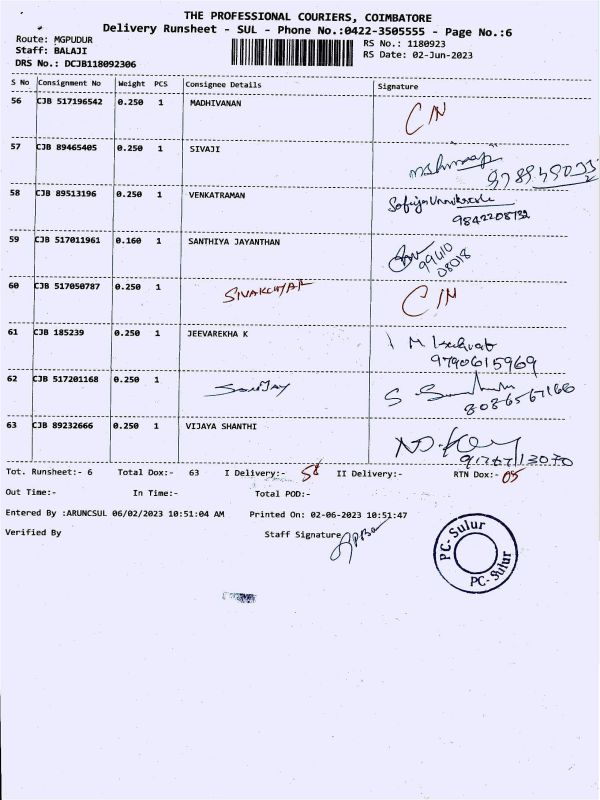 THE PROFESSIONAL COURIERS, COIMBATORE
Delivery Runsheet - SUL - Phone No.:0422-3505555 - Page No.:6
Route: MGPUDUR
RS No.: 1180923
Staff: BALAJI
RS Date: 02-Jun-2023
DRS No.: DCJB118092306
S No Consignment No Weight PCS Consignee Details Signature
56 CJB 517196542 0.250 1 MADHIVANAN C/N
57 CJB 89465405 0.250 1 SIVAJI
58 CJB 89513196 0.250 1 VENKATRAMAN
9842208732
59 CJB 517011961 0.160 1 SANTHIYA JAYANTHAN
99410
08018
60 CJB 517050787 0.250 1 SIVAKUMAR C/N
61 CJB 185239 0.250 1 JEEVAREKHA K
9790615969
62 CJB 517201168 0.250 1 SANJAY
63 CJB 89232666 0.250 1 VIJAYA SHANTHI
Tot. Runsheet:- 6 Total Dox:- 63 I Delivery:- 58 II Delivery:- RTN Dox:- 05
Out Time:- In Time:- Total POD:-
Entered By :ARUNCSUL 06/02/2023 10:51:04 AM Printed On: 02-06-2023 10:51:47
Verified By Staff Signature
PC- Sulur
PC- Sulur